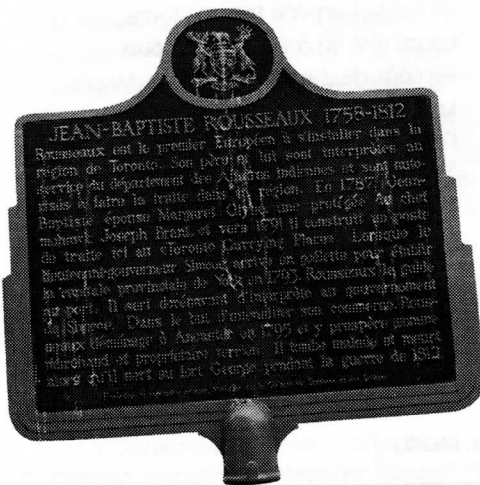 JEAN-BAPTISTE ROUSSEAUX 1758-1812
Rousseaux est le premier Européen à s'installer dans la
région de Toronto. Son père et lui sont interprètes au
service du département des Affaires indiennes et sont auto-
risés à faire la traite dans la région. En 1787, Jean-
Baptiste épouse Margaret une protégée du chef
mohawk Joseph Brant et vers 1791 il construit un poste
de traite ici au Toronto Carrying Place. Lorsque le
lieutenant-gouverneur Simcoe arrive en goélette pour établir
la capitale provinciale de York en 1793, Rousseaux la guide
au port. Il sert dorénavant d'interprète au gouvernement
de Simcoe. Dans le but d'étendre son commerce, Rous-
seaux déménage à Ancaster en 1795 et y prospère comme
marchand et propriétaire terrien. Il tombe malade et meurt
alors qu'il sert au fort George pendant la guerre de 1812